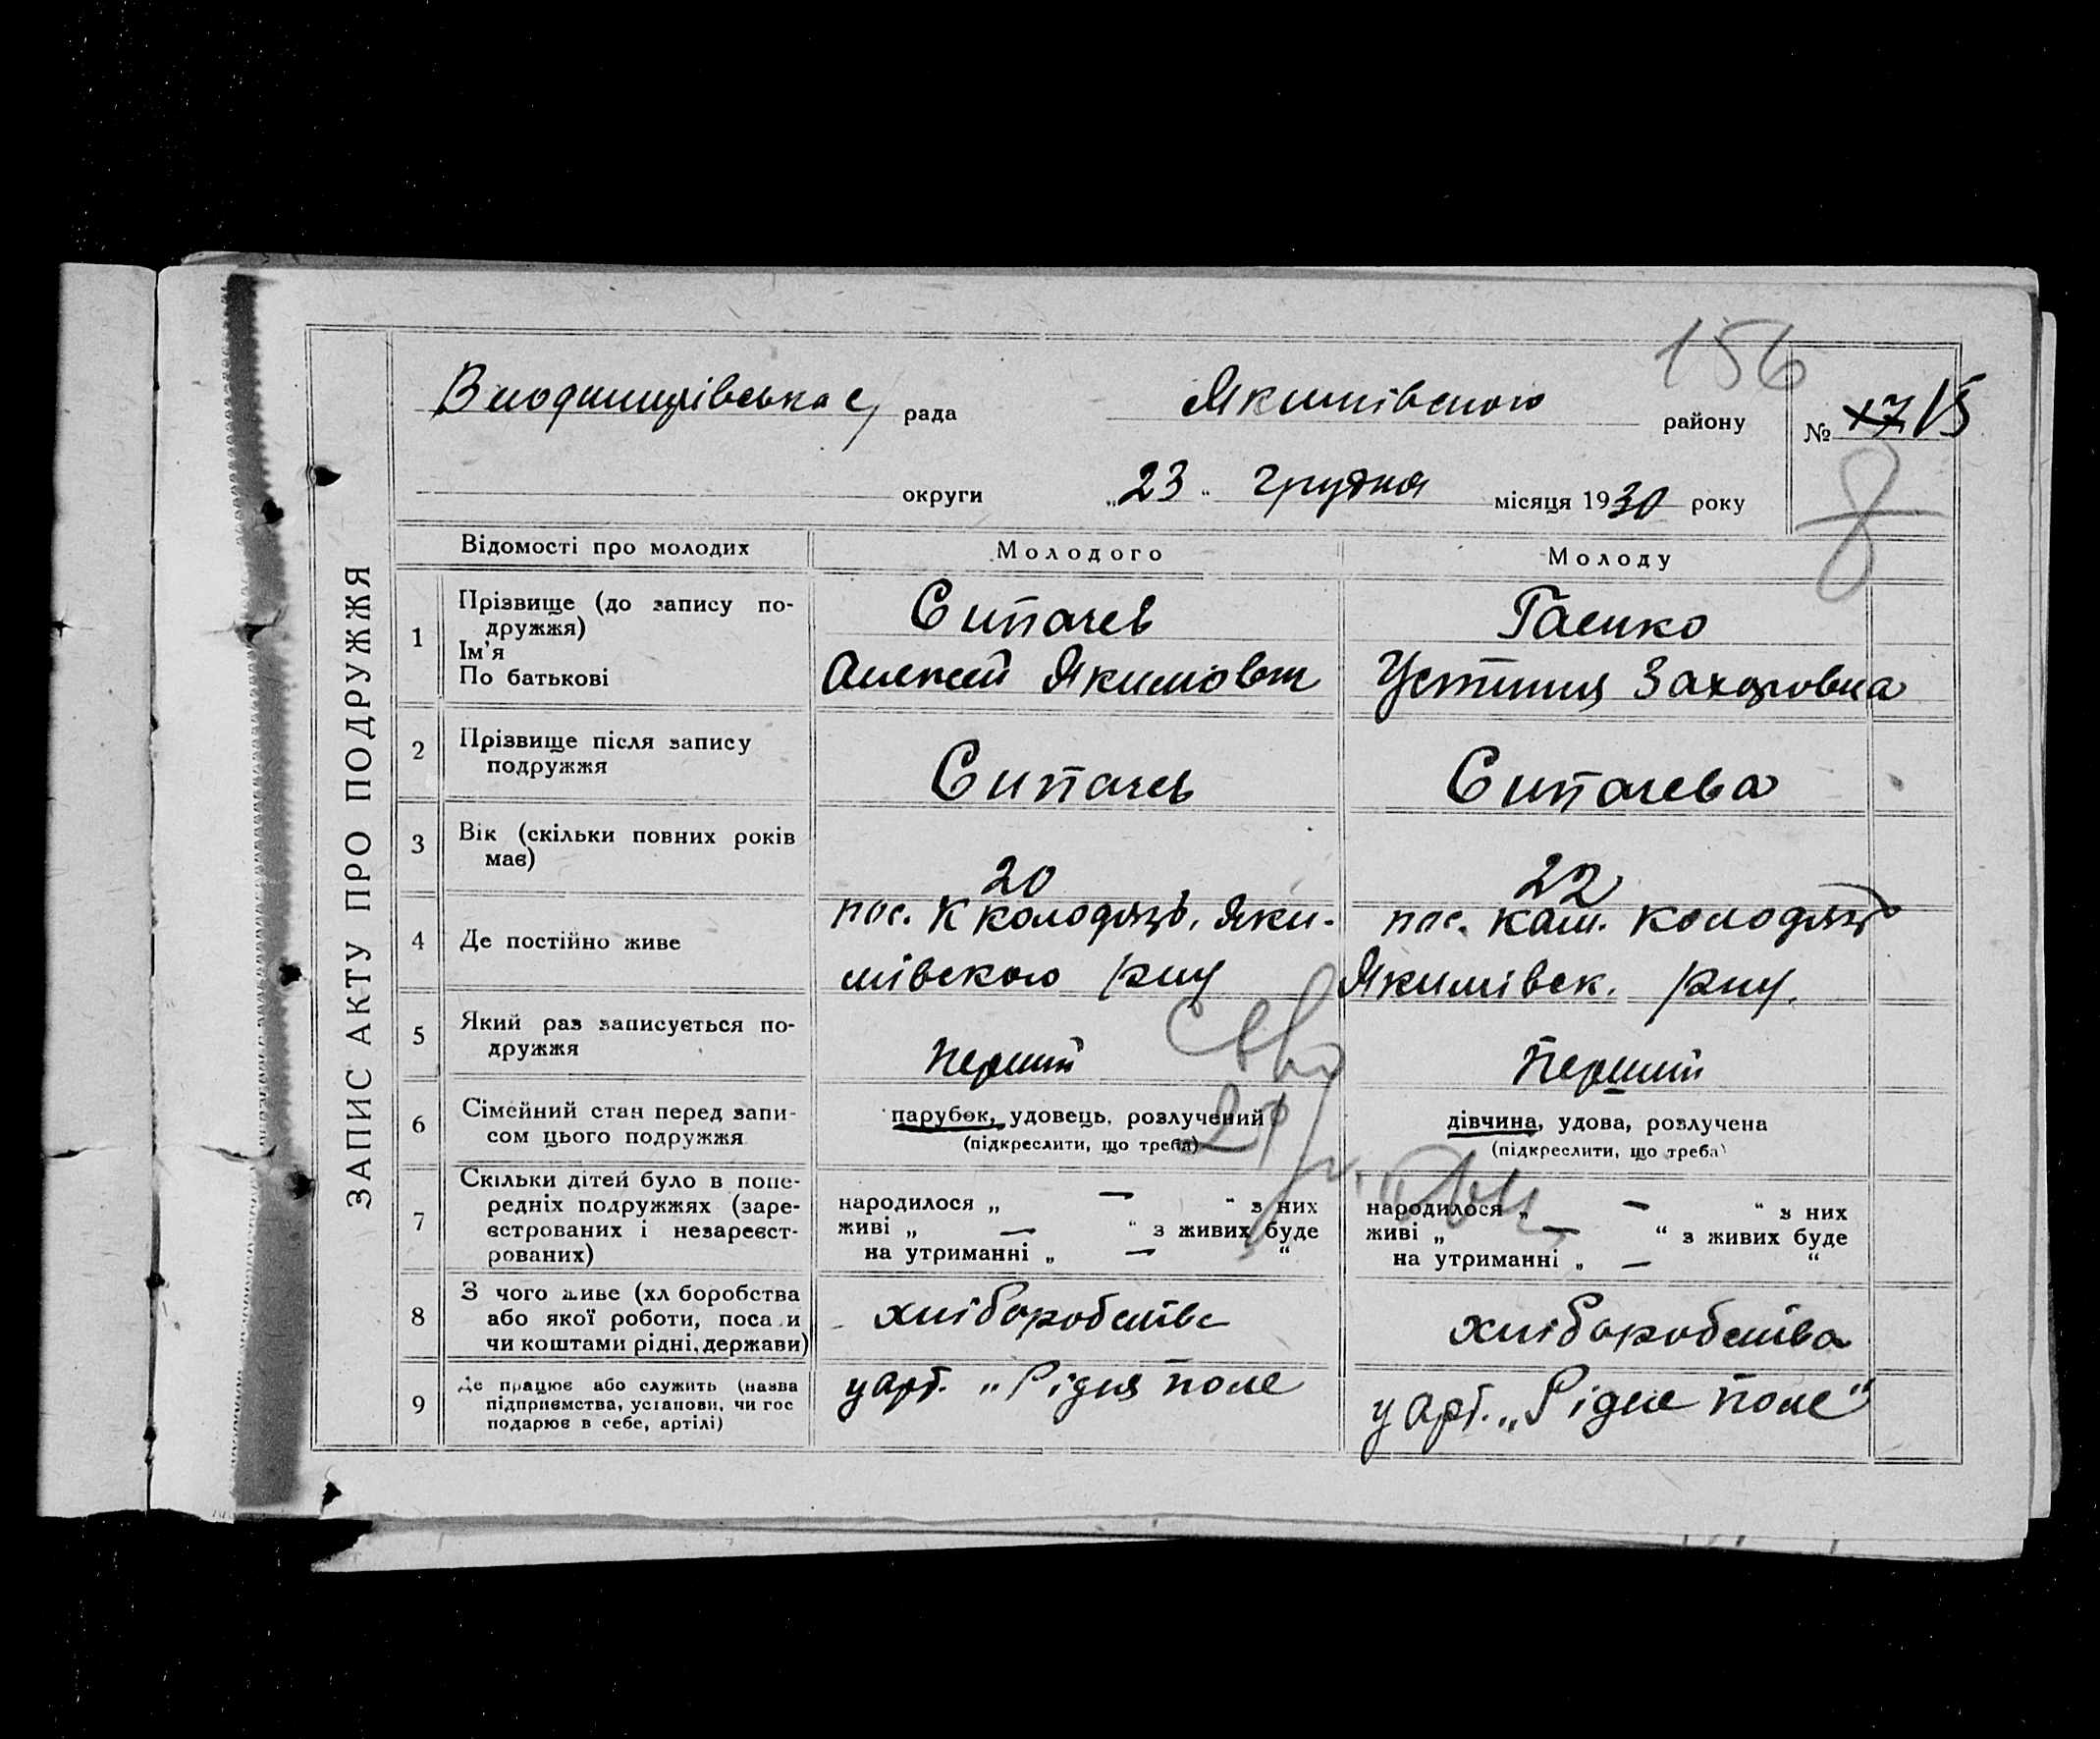 156
Володимирівська с/ рада Якимівського району № 17 15
округи „23“ грудня місяця 1930 року
8
ЗАПИС АКТУ ПРО ПОДРУЖЖЯ
Відомості про молодих Молодого Молоду
1 Прізвище (до запису по-
дружжя)
Ім’я
По батькові
Сипачев
Алексей Якимовіч
Гаенко
Устиния Захаровна
2 Прізвище після запису
подружжя
Сипачев
Сипачева
3 Вік (скільки повних років
має)
20
22
4 Де постійно живе
пос. К колодязь, Яки-
мівского р-ну
пос. Кам. колодязь
Якимівск. р-ну.
5 Який раз записується по-
дружжя
Перший
Перший
6 Сімейний стан перед запи-
сом цього подружжя
парубок, удовець, розлучений
(підкреслити, що треба)
дівчина, удова, розлучена
(підкреслити, що треба)
7 Скільки дітей було в попе-
редніх подружжях (заре-
єстрованих і незареєст-
рованих)
народилося „ — “ з них
живі „ — “ з живих буде
на утриманні „ — “
народилося „ — “ з них
живі „ — “ з живих буде
на утриманні „ — “
8 З чого живе (хл боробства
або якої роботи, поса и
чи коштами рідні, держави)
хліборобство
хліборобства
9 Де працює або служить (назва
підприємства, установи, чи гос
подарює в себе, артілі)
у арт. „Рідня поле
у арт. „Рідне поле“